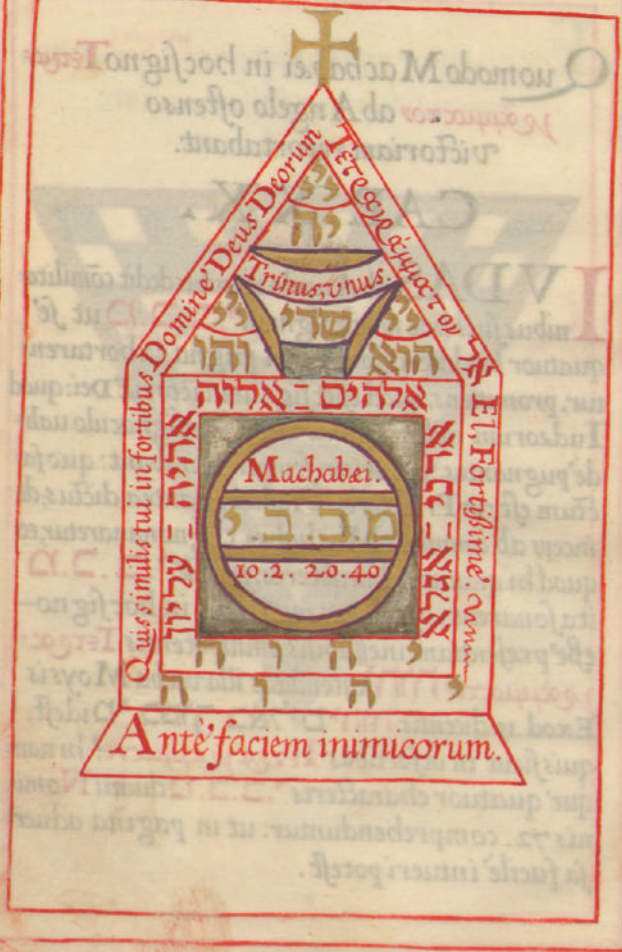 Quis similis tui in fortibus Dominè Deus Deorum
Τετραγράμματον אל
El, Fortissimè
יי
יה
Trinus, vnus.
יי שדי יי
הוא והו
אלהים = אלוה
אדני = אגלא
אהיה = עליון
Machabæi.
מ.כ.ב.י
10.2. 20.40
י ה ה
י ה ו ה
Antè faciem inimicorum.